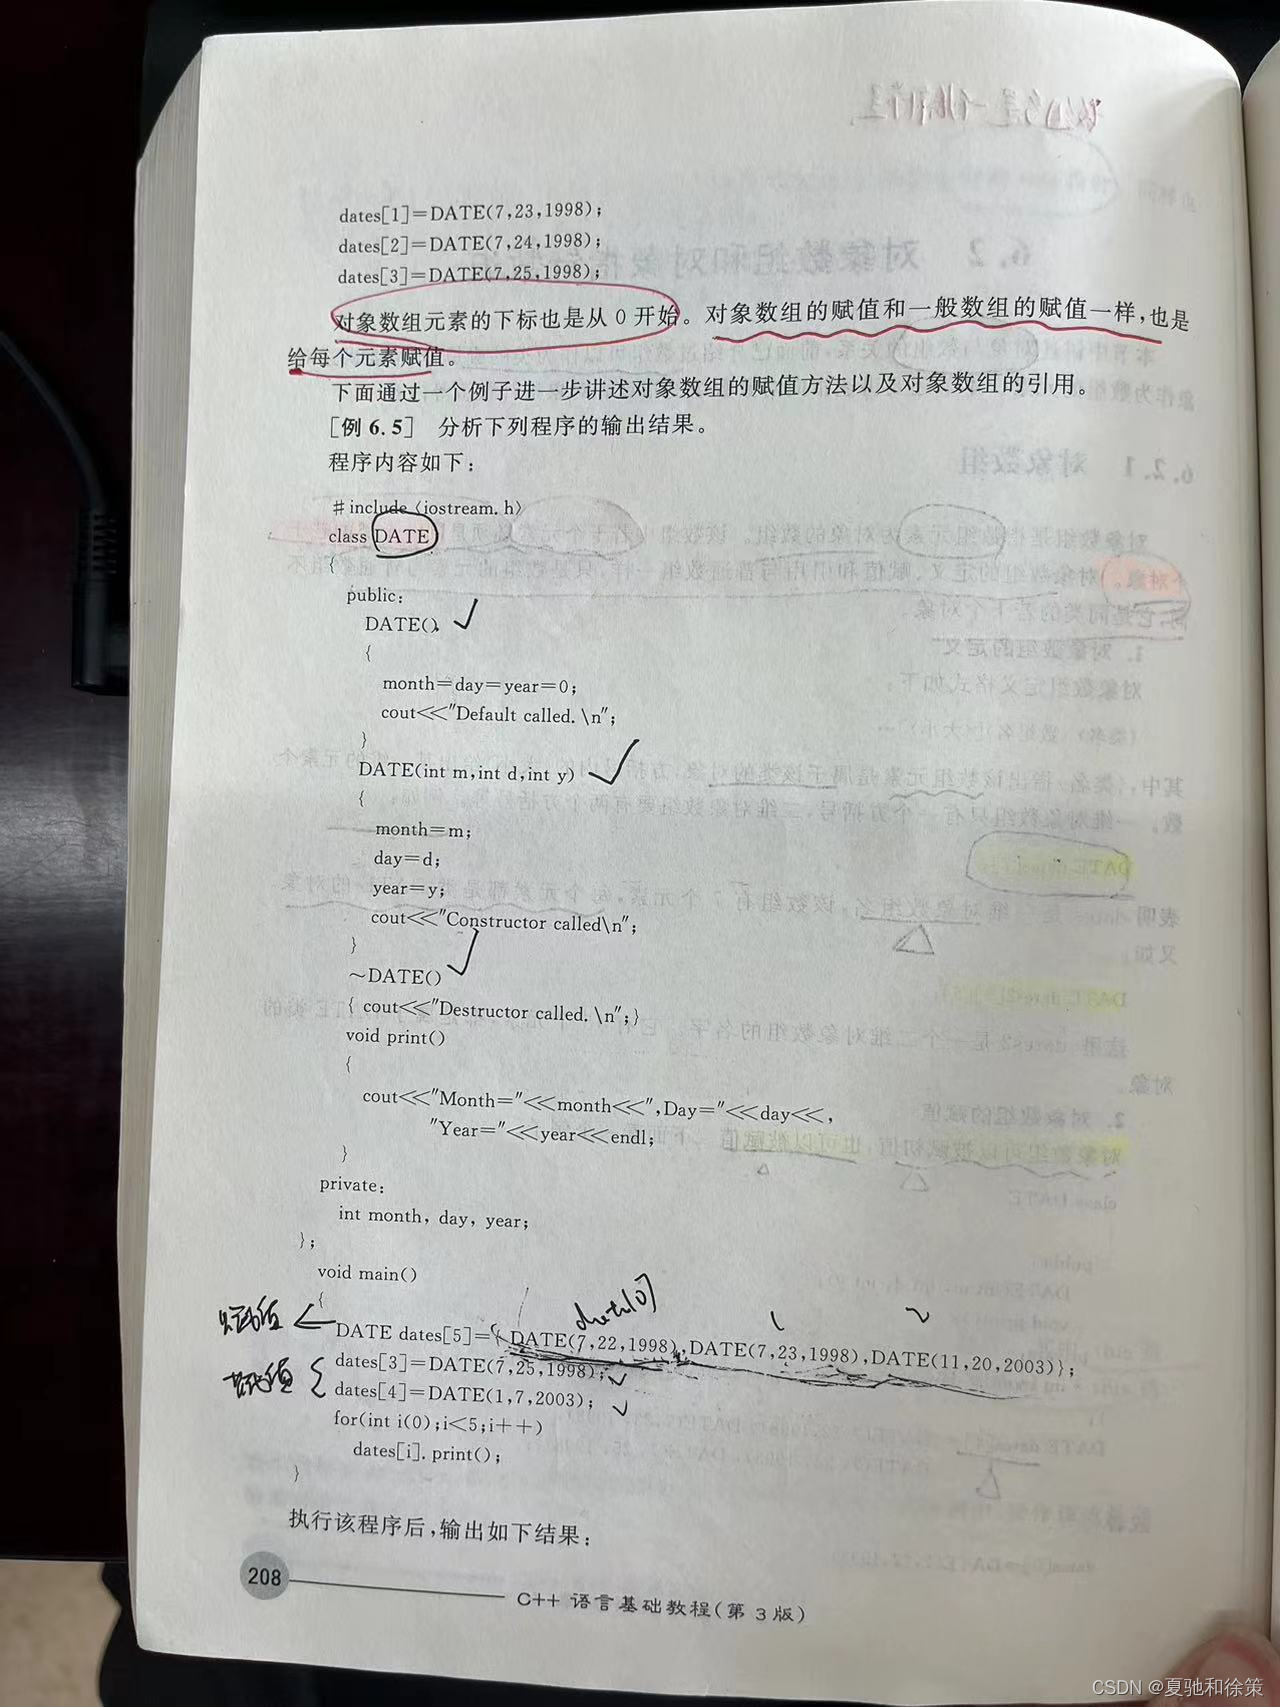 dates[1]=DATE(7,23,1998);
dates[2]=DATE(7,24,1998);
dates[3]=DATE(7,25,1998);
对象数组元素的下标也是从 0 开始。对象数组的赋值和一般数组的赋值一样,也是
给每个元素赋值。
下面通过一个例子进一步讲述对象数组的赋值方法以及对象数组的引用。
[例 6.5] 分析下列程序的输出结果。
程序内容如下:
#include <iostream.h>
class DATE
{
public:
DATE()
{
month=day=year=0;
cout<<"Default called.\n";
}
DATE(int m,int d,int y)
{
month=m;
day=d;
year=y;
cout<<"Constructor called\n";
}
~DATE()
{ cout<<"Destructor called.\n";}
void print()
{
cout<<"Month="<<month<<",Day="<<day<<,
"Year="<<year<<endl;
}
private:
int month, day, year;
};
void main()
{
dates[0] 1 2
赋值
DATE dates[5]={DATE(7,22,1998),DATE(7,23,1998),DATE(11,20,2003)};
dates[3]=DATE(7,25,1998);
赋值 {
dates[4]=DATE(1,7,2003);
for(int i(0);i<5;i++)
dates[i].print();
}
执行该程序后,输出如下结果:
208
C++ 语言基础教程(第 3 版)
CSDN @夏驰和徐策